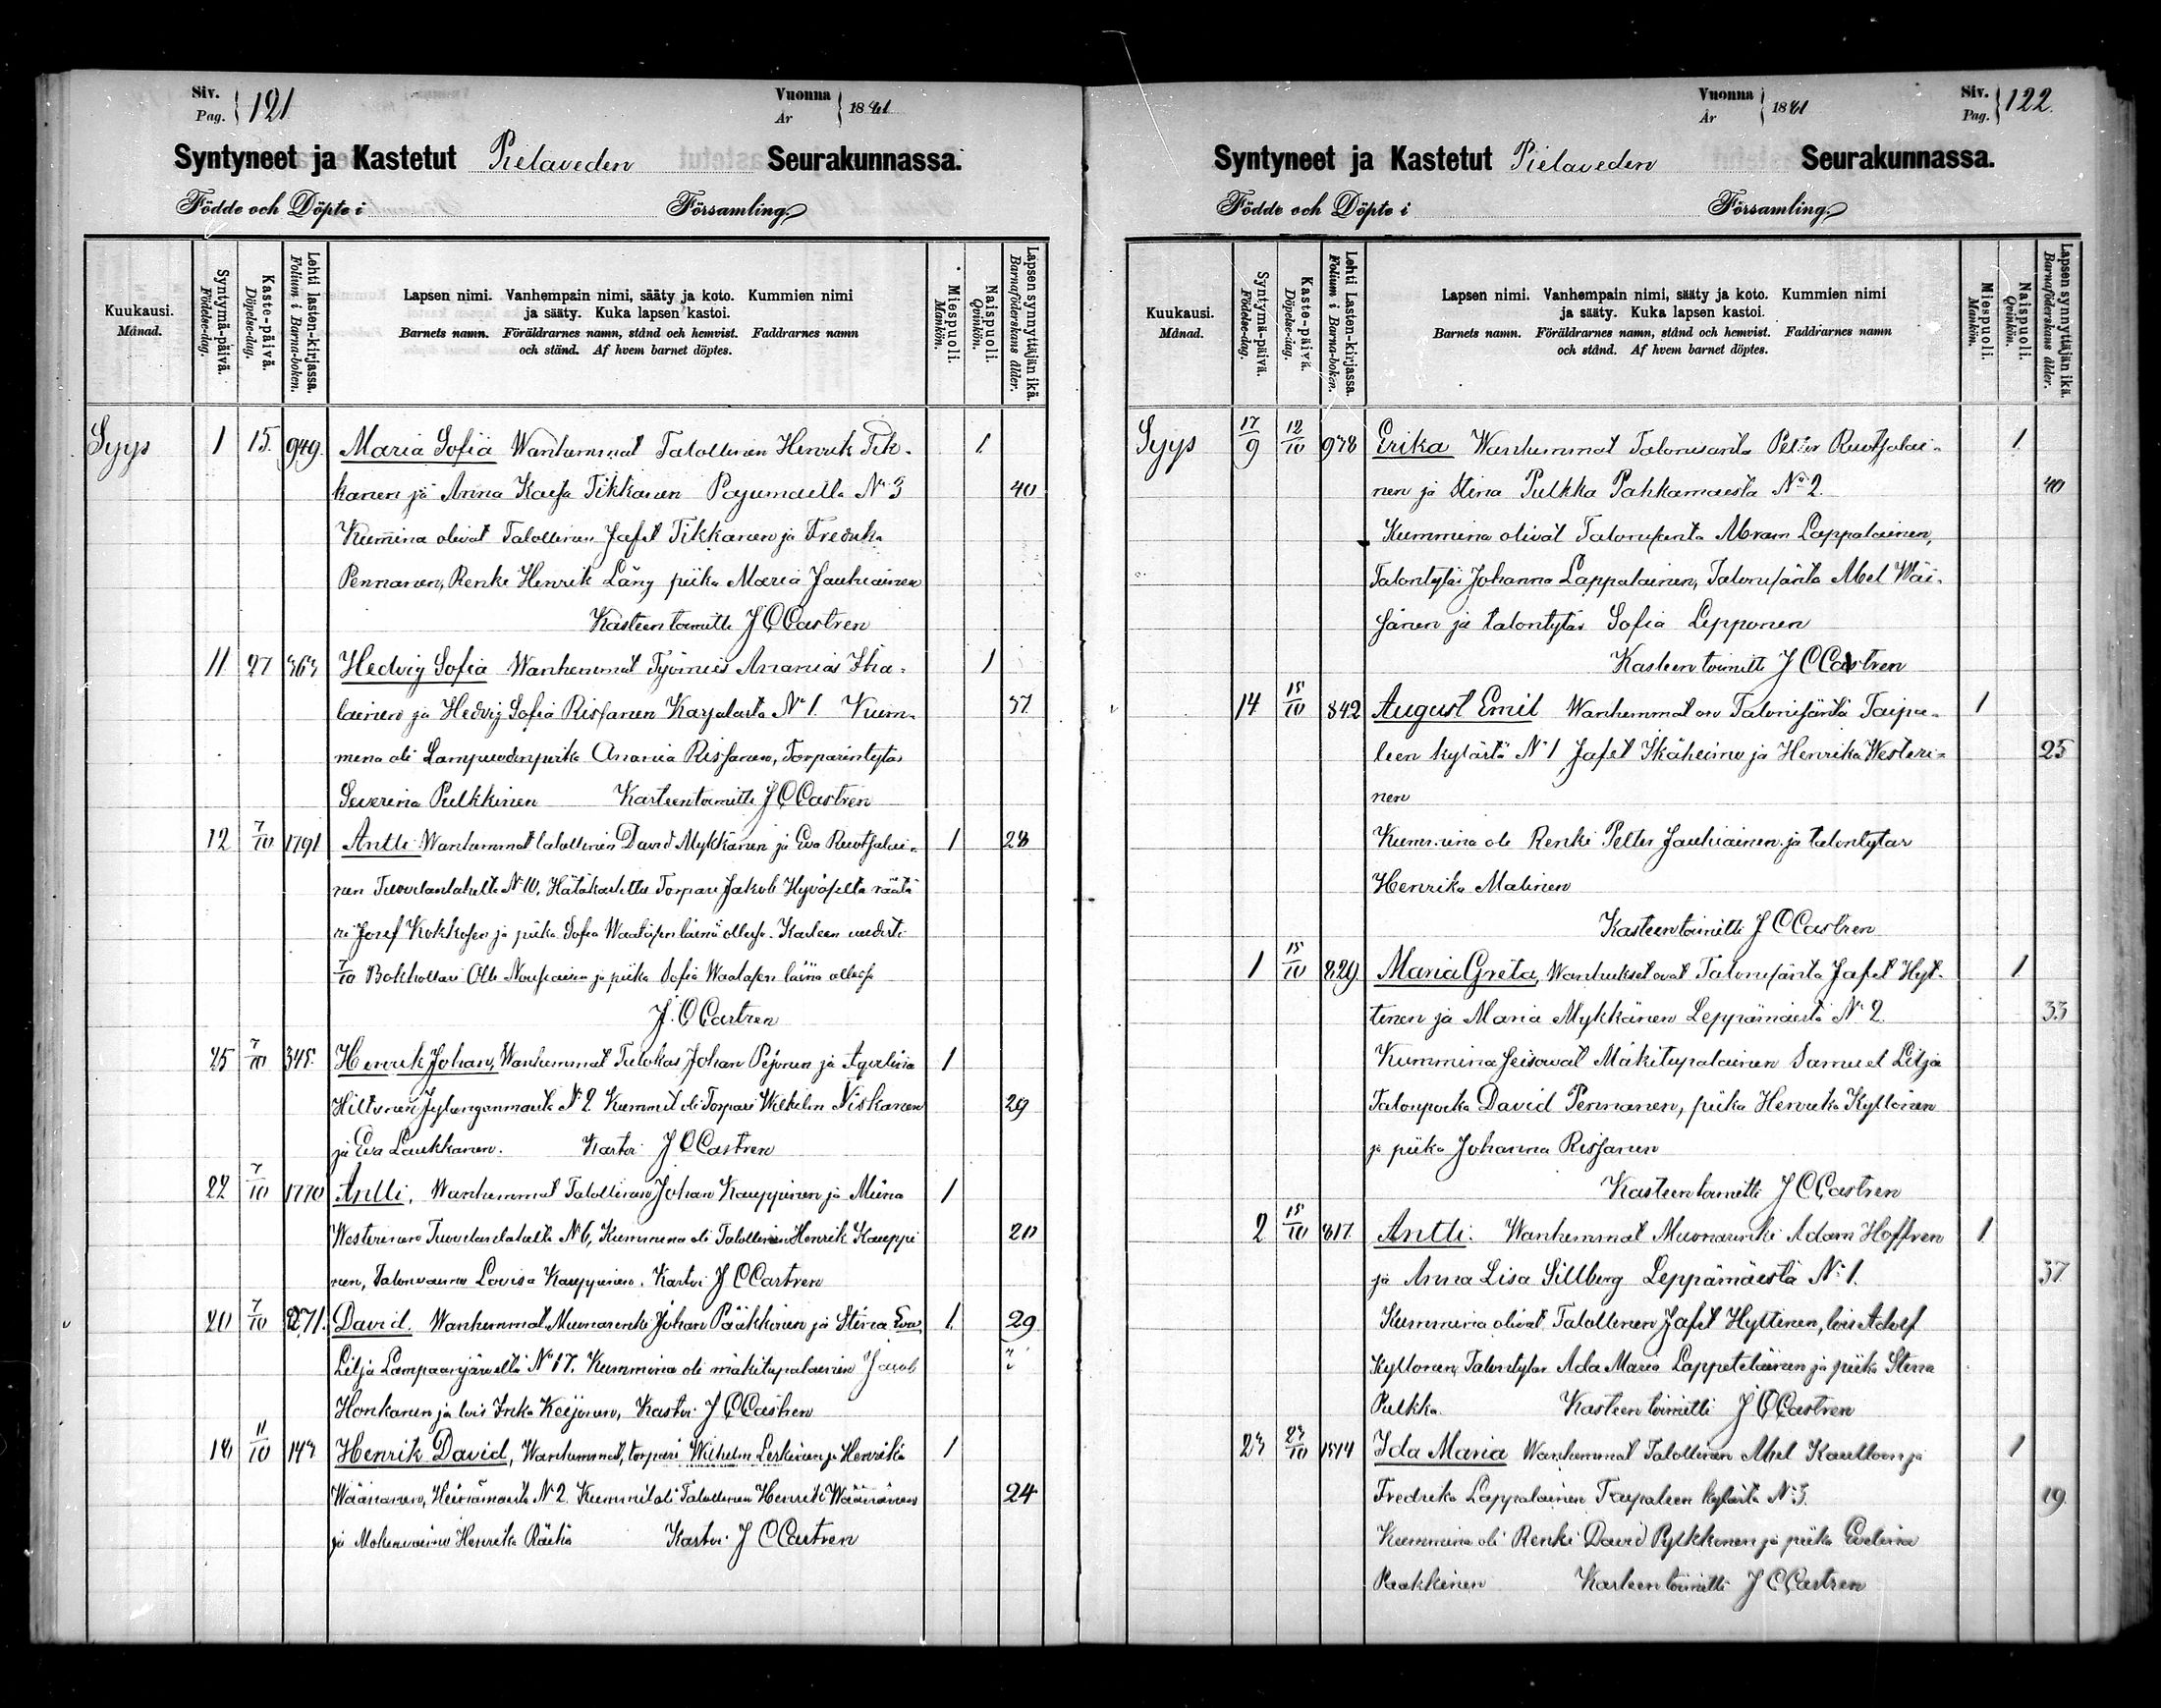 Siv.
Pag. 121
Vuonna
År 1881
Syntyneet ja Kastetut Pielaveden Seurakunnassa.
Födde och Döpte i Församling.
Kuukausi.
Månad.
Syntymä-päivä.
Födelse-dag.
Kaste-päivä.
Döpelse-dag.
Lehti lasten-kirjassa.
Folium i Barna-boken.
Lapsen nimi. Vanhempain nimi, sääty ja koto. Kummien nimi
ja sääty. Kuka lapsen kastoi.
Barnets namn. Föräldrarnes namn, stånd och hemvist. Faddrarnes namn
och stånd. Af hvem barnet döptes.
Miespuoli.
Mankön.
Naispuoli.
Qvinkön.
Lapsen synnyttäjän ikä.
Barnaföderskans ålder.
Syys 1 15. 949. Maria Sofia Wanhemmat Talollinen Henrik Tik- 1.
kanen ja Anna Kaisa Tikkanen Pajumäella No 3 40
Kummina olivat Talollinen Jafet Tikkanen ja Fredrika
Pennanen, Renki Henrik Läng piika Maria Jauhiainen
Kasteen toimitti J C Castren
11 27 Hedvig Sofia Wanhemmat Työmies Ananias Iha- 1
lainen ja Hedvig Sofia Rissanen Karjalasta No 1. Kum- 37.
mina oli Ananias Rissanen, Torparintytär
Severina Pulkkinen Kasteen toimitti J C Castren
12 7/10 1791 Antti Wanhemmat talollinen David Mykkänen ja Eva Ruotsalai- 1 28
nen Tuovilanlahelta No 10. Hätäkastettu Torpari Jakob
ri Josef Kokkosen ja piika Sofia
7/10 Olli ja piika Sofia läsnä ollessa
J. C Castren
25 7/10 345. Henrik Johan, Wanhemmat Tulokas Johan Pejonen ja Agvelina 1
Hiltunen No 2 Kummit oli Torpari Wilhelm Niskanen 29
ja Eva Laukkanen. Kastoi J C Castren
22 7/10 1770 Antti, Wanhemmat Talollinen Johan Kauppinen ja Miina 1
Westerinen Tuovilanlahelta No 6, Kummina oli Talollinen Henrik Kauppi 20
nen, Talonvaimo Lovisa Kauppinen. Kastoi J C Castren
20 7/10 271. David. Wanhemmat Muonarenki Johan Pääkkönen ja Stina Eva 1. 29
Lilja Lampaanjärveltä No 17. Kummina oli mäkitupalainen Jacob
Honkanen ja lois Keijonen, Kastoi J C Castren
18 11/10 143 Henrik David, Wanhemmat, torpari Wilhelm Leskinen ja Henrika 1
Wäänänen, No 2. Kummit oli Talollinen Henrik Wäänänen 24
ja Henrika Räihä Kastoi J C Castren
Vuonna
År 1881
Siv.
Pag. 122.
Syntyneet ja Kastetut Pielaveden Seurakunnassa.
Födde och Döpte i Församling.
Kuukausi.
Månad.
Syntymä-päivä.
Födelse-dag.
Kaste-päivä.
Döpelse-dag.
Lehti Lasten-kirjassa.
Folium i Barna-boken.
Lapsen nimi. Vanhempain nimi, sääty ja koto. Kummien nimi
ja sääty. Kuka lapsen kastoi.
Barnets namn. Föräldrarnes namn, stånd och hemvist. Faddrarnes namn
och stånd. Af hvem barnet döptes.
Miespuoli.
Mankön.
Naispuoli.
Qvinkön.
Lapsen synnyttäjän ikä.
Barnaföderskans ålder.
Syys 17/9 12/10 978 Erika Wanhemmat Talonisäntä Petter Ruotsalai- 1.
nen ja Stina Pulkka Pahkamäestä No 2. 40
Kummina olivat Talonisäntä Abram Lappalainen,
Talontytär Johanna Lappalainen, Talonisäntä Abel Wäi-
sänen ja talontytär Sofia Lepponen
Kasteen toimitti J C Castren
14 15/10 842 August Emil Wanhemmat on Talonisäntä Taipa- 1
leen kylästä No 1 Jafet Ikäheimo ja Henrika Westeri- 25
nen
Kummina oli Renki Petter Jauhiainen ja talontytar
Henrika Malinen
Kasteen toimitti J C Castren
1 15/10 829 Maria Greta, Wanhukset ovat Talonisäntä Jafet Hyt- 1.
tinen ja Maria Mykkänen Leppämäestä No 2. 33
Kummina seisovat Mäkitupalainen Samuel Lilja
Talonpoika David Pennanen, piika Henrika Kyllönen
ja piika Johanna Rissanen
Kasteen toimitti J C Castren
2 15/10 817. Antti. Wanhemmat Muonarenki Adam Hoffren 1.
ja Anna Lisa Sillberg Leppämäestä No 1. 37.
Kummina olivat Talollinen Jafet Hyttinen, lois Adolf
Kyllonen, Talontytar Ada Maria Lappeteläinen ja piika Stina
Pulkka. Kasteen toimitti J C Castren
23 23/10 Ida Maria Wanhemmat Talollinen Abel Kauttoin ja 1
Fredrika Lappalainen Taipaleen kylästä No 3. 19.
Kummina oli Renki David Pylkkönen ja piika Evelina
Paakkinen Kasteen toimitti J C Castren